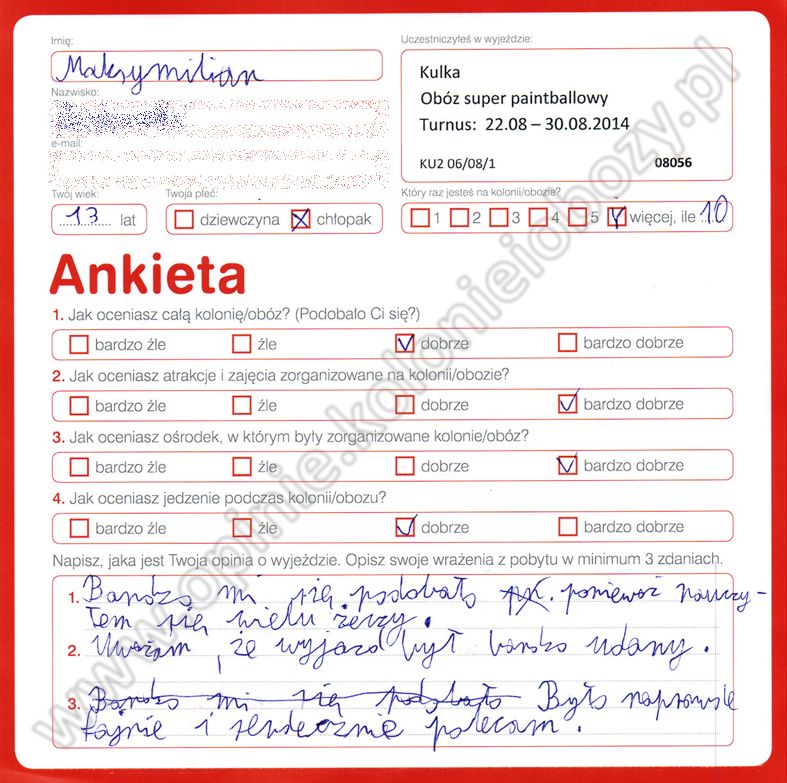 Imię:
Maksymilian
Uczestniczyłeś w wyjeździe:
Kulka
Obóz super paintballowy
Turnus: 22.08 – 30.08.2014
KU2 06/08/1 08056
Nazwisko:
e-mail:
Twój wiek:
13 lat
Twoja płeć:
dziewczyna chłopak
Który raz jesteś na kolonii/obozie?
1 2 3 4 5 więcej, ile 10
Ankieta
1. Jak oceniasz całą kolonię/obóz? (Podobało Ci się?)
bardzo źle źle dobrze bardzo dobrze
2. Jak oceniasz atrakcje i zajęcia zorganizowane na kolonii/obozie?
bardzo źle źle dobrze bardzo dobrze
3. Jak oceniasz ośrodek, w którym były zorganizowane kolonie/obóz?
bardzo źle źle dobrze bardzo dobrze
4. Jak oceniasz jedzenie podczas kolonii/obozu?
bardzo źle źle dobrze bardzo dobrze
Napisz, jaka jest Twoja opinia o wyjeździe. Opisz swoje wrażenia z pobytu w minimum 3 zdaniach.
1. Bardzo mi się podobało . ponieważ nauczy-
łem się wielu rzeczy.
2. Uważam, że wyjazd był bardzo udany.
3. Bardzo mi się podobało Było naprawdę
fajnie i serdecznie polecam.
www.opinie.kolonieiobozy.pl